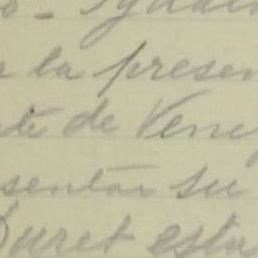 la presen
te de Vene
sentar su
Duret esta